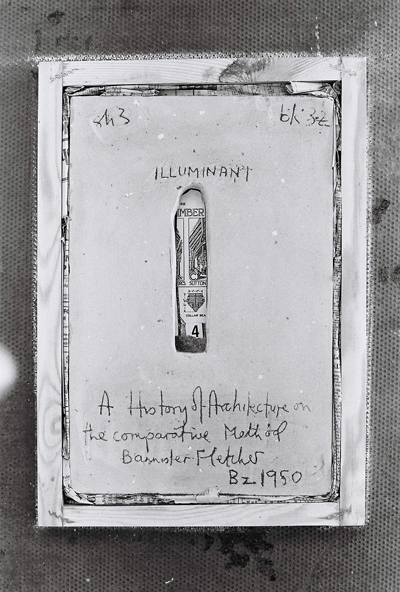 ch3
bk 3-z
ILLUMINANT
MBER
SUTTON
COLLAR BEA
4
A History of Architecture on
the comparative Method
Bannister Fletcher
Bz 1950